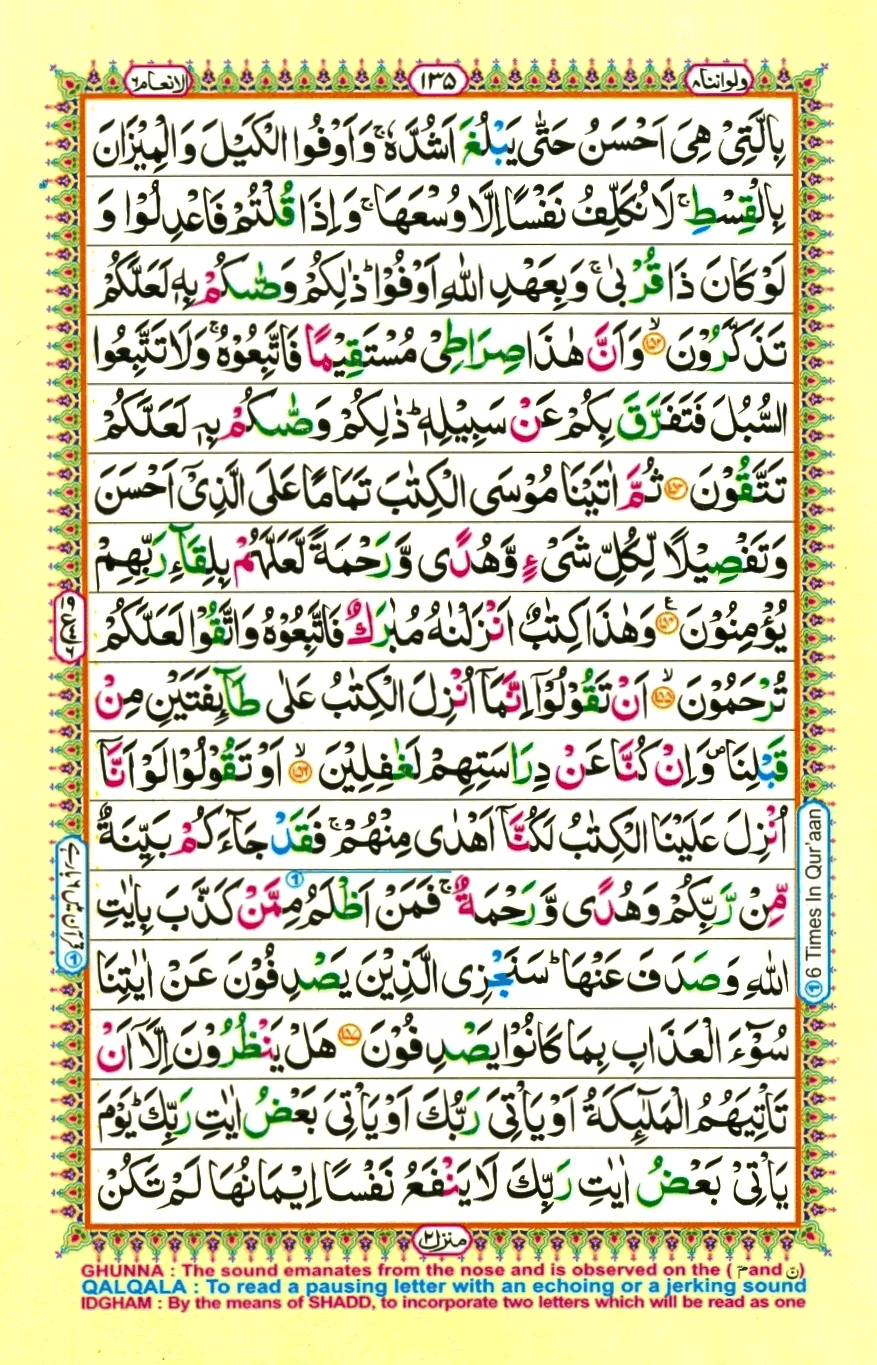 ولواننا ۸
۱۳۵
الانعام ۶
بِالَّتِیْ هِیَ اَحْسَنُ حَتّٰی یَبْلُغَ اَشُدَّهٗ ۚ وَاَوْفُوا الْكَیْلَ وَالْمِیْزَانَ
بِالْقِسْطِ ۚ لَا نُكَلِّفُ نَفْسًا اِلَّا وُسْعَهَا ۚ وَاِذَا قُلْتُمْ فَاعْدِلُوْا وَ
لَوْ كَانَ ذَا قُرْبٰی ۚ وَبِعَهْدِ اللّٰهِ اَوْفُوْا ؕ ذٰلِكُمْ وَصّٰىكُمْ بِهٖ لَعَلَّكُمْ
تَذَكَّرُوْنَ ۙ﴿۱۵۲﴾ وَاَنَّ هٰذَا صِرَاطِیْ مُسْتَقِیْمًا فَاتَّبِعُوْهُ ۚ وَلَا تَتَّبِعُوا
السُّبُلَ فَتَفَرَّقَ بِكُمْ عَنْ سَبِیْلِهٖ ؕ ذٰلِكُمْ وَصّٰىكُمْ بِهٖ لَعَلَّكُمْ
تَتَّقُوْنَ ﴿۱۵۳﴾ ثُمَّ اٰتَیْنَا مُوْسَی الْكِتٰبَ تَمَامًا عَلَی الَّذِیْۤ اَحْسَنَ
وَتَفْصِیْلًا لِّكُلِّ شَیْءٍ وَّهُدًی وَّرَحْمَةً لَّعَلَّهُمْ بِلِقَآءِ رَبِّهِمْ
یُؤْمِنُوْنَ ﴿۱۵۴﴾ ع وَهٰذَا كِتٰبٌ اَنْزَلْنٰهُ مُبٰرَكٌ فَاتَّبِعُوْهُ وَاتَّقُوْا لَعَلَّكُمْ
تُرْحَمُوْنَ ۙ﴿۱۵۵﴾ اَنْ تَقُوْلُوْۤا اِنَّمَاۤ اُنْزِلَ الْكِتٰبُ عَلٰی طَآىِٕفَتَیْنِ مِنْ
قَبْلِنَا ۪ وَاِنْ كُنَّا عَنْ دِرَاسَتِهِمْ لَغٰفِلِیْنَ ۙ﴿۱۵۶﴾ اَوْ تَقُوْلُوْا لَوْ اَنَّاۤ
اُنْزِلَ عَلَیْنَا الْكِتٰبُ لَكُنَّاۤ اَهْدٰی مِنْهُمْ ۚ فَقَدْ جَآءَكُمْ بَیِّنَةٌ
مِّنْ رَّبِّكُمْ وَهُدًی وَّرَحْمَةٌ ۚ ① فَمَنْ اَظْلَمُ مِمَّنْ كَذَّبَ بِاٰیٰتِ
اللّٰهِ وَصَدَفَ عَنْهَا ؕ سَنَجْزِی الَّذِیْنَ یَصْدِفُوْنَ عَنْ اٰیٰتِنَا
سُوْٓءَ الْعَذَابِ بِمَا كَانُوْا یَصْدِفُوْنَ ﴿۱۵۷﴾ هَلْ یَنْظُرُوْنَ اِلَّاۤ اَنْ
تَاْتِیَهُمُ الْمَلٰٓىِٕكَةُ اَوْ یَاْتِیَ رَبُّكَ اَوْ یَاْتِیَ بَعْضُ اٰیٰتِ رَبِّكَ ؕ یَوْمَ
یَاْتِیْ بَعْضُ اٰیٰتِ رَبِّكَ لَا یَنْفَعُ نَفْسًا اِیْمَانُهَا لَمْ تَكُنْ
① 6 Times In Qur'aan
① قرآن میں ۶ بار ہے
منزل ۲
GHUNNA : The sound emanates from the nose and is observed on the ( م and ن )
QALQALA : To read a pausing letter with an echoing or a jerking sound
IDGHAM : By the means of SHADD, to incorporate two letters which will be read as one